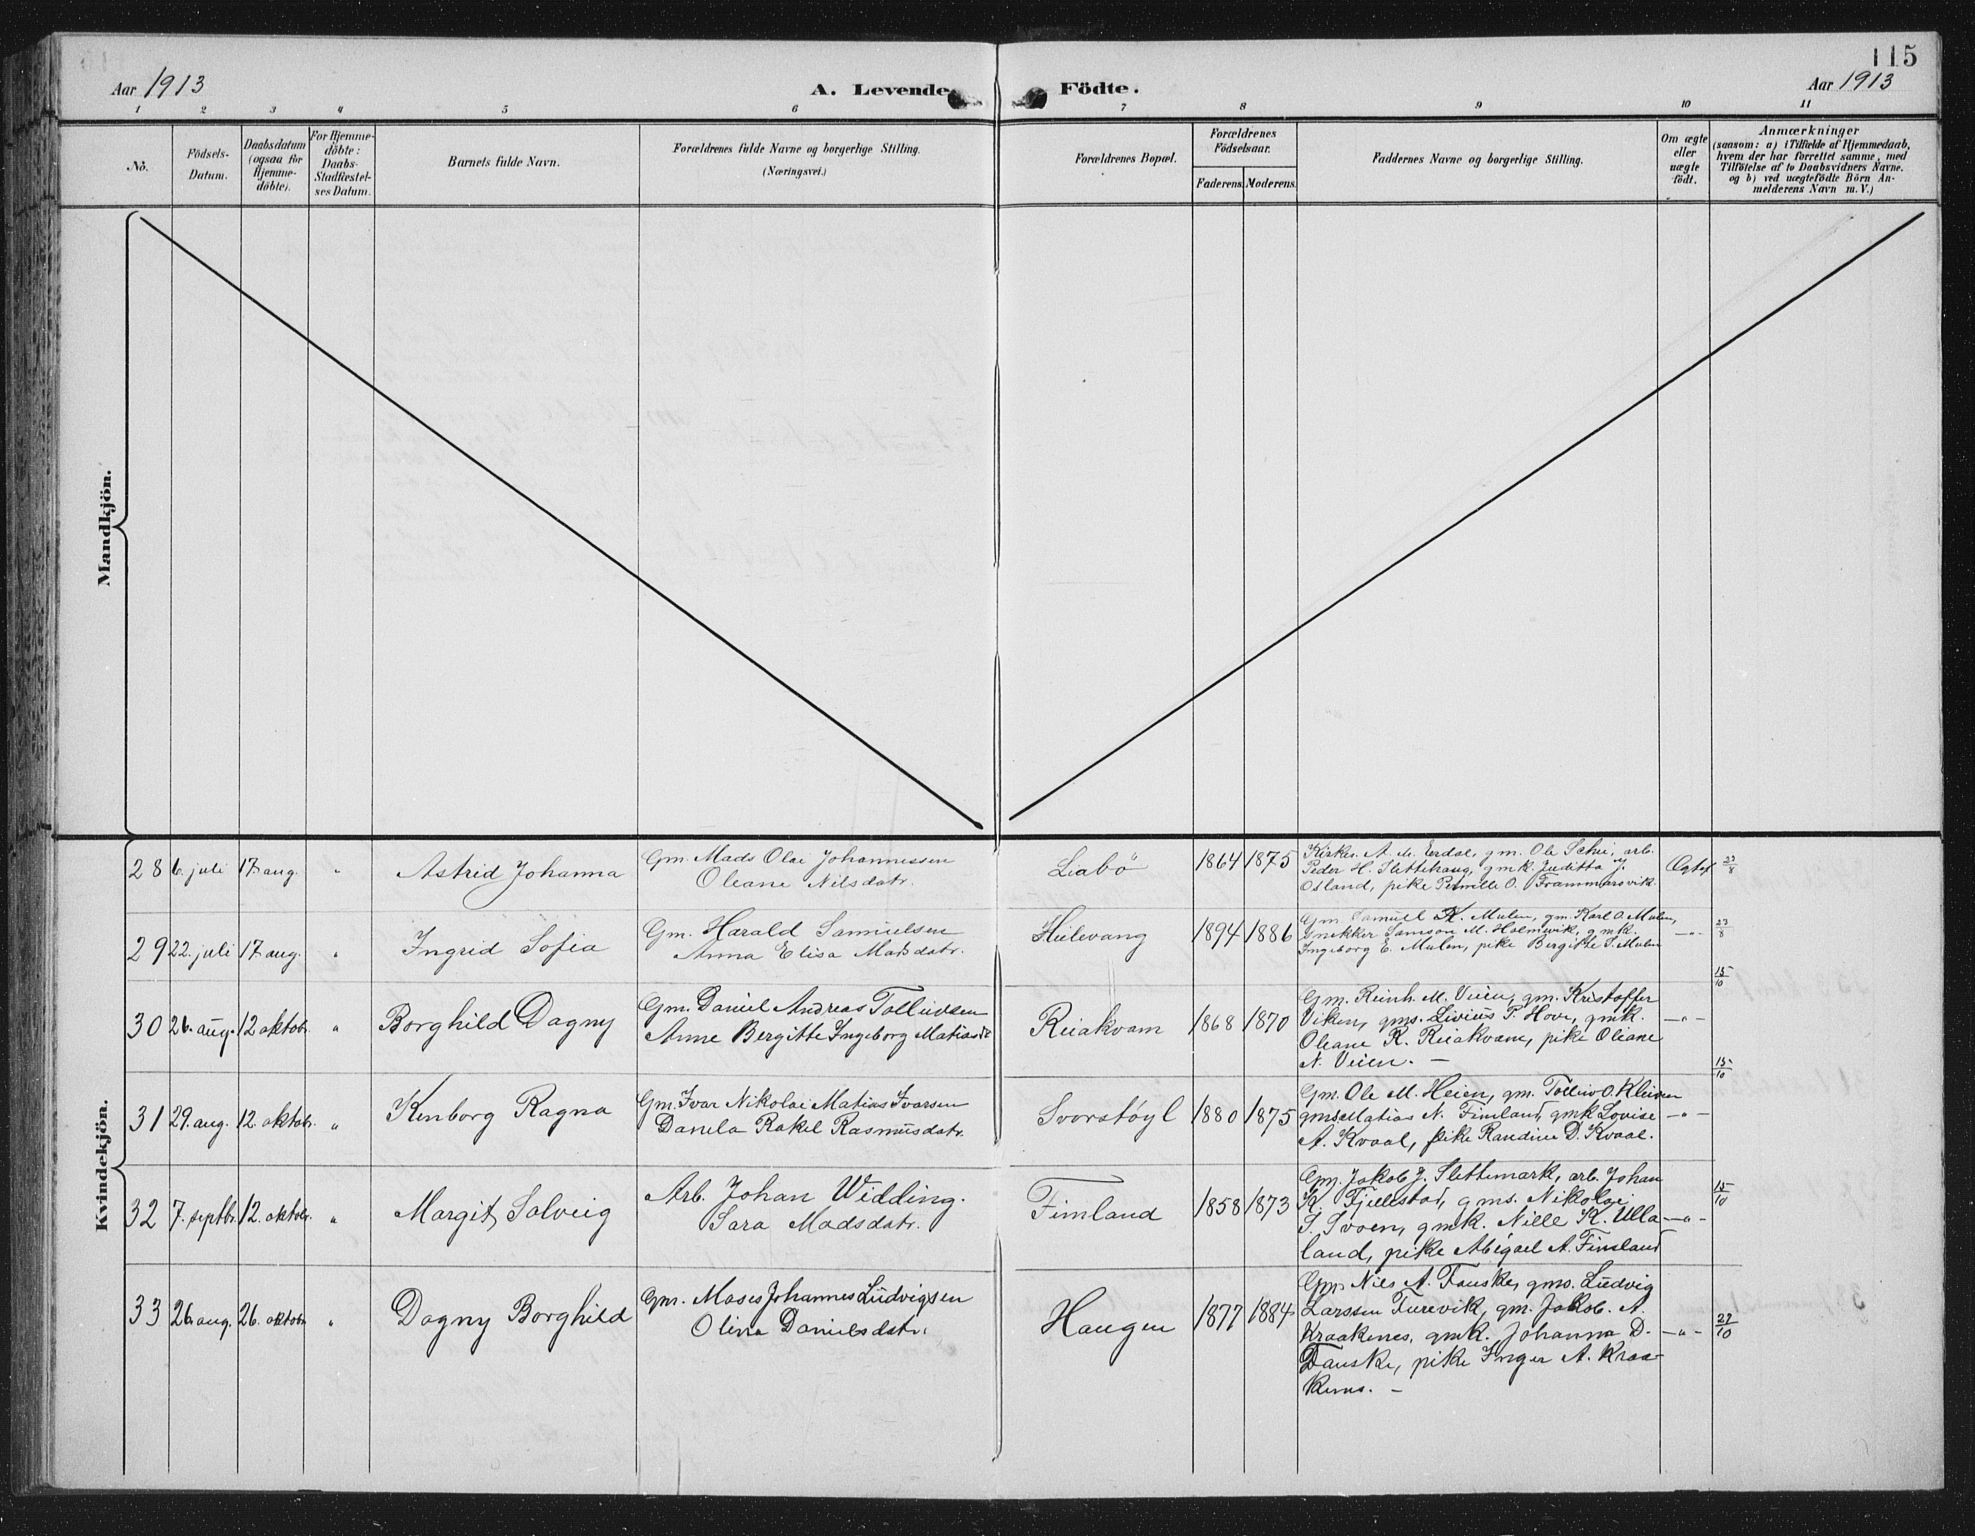 115
Aar 1913
A. Levende Födte.
Aar 1913
1 2 3 4 5 6 7 8 9 10 11
No.
Födsels-
Datum.
Daabsdatum
(ogsaa for
Hjemme-
döbte).
For Hjemme-
döbte:
Daabs-
Stadfæstel-
ses Datum.
Barnets fulde Navn.
Forældrenes fulde Navne og borgerlige Stilling.
(Næringsvei.)
Forældrenes Bopæl.
Forældrenes
Födselsaar.
Faderens. Moderens.
Faddernes Navne og borgerlige Stilling.
Om ægte
eller
uægte
födt.
Anmærkninger
(saasom: a) i Tilfælde af Hjemmedaab,
hvem der har forrettet samme, med
Tilföielse af to Daabsvidners Navne.
og b) ved uægtefödte Börn An-
melderens Navn m. V.)
Mandkjön.
Kvindekjön.
28 6. juli 17. aug. "
Astrid Johanna
Gm. Mads Olai Johannessen
Oleane Nilsdatr.
Liabö
1864 1875
Kirkes. A. M. Eerdal, gm. Ole Schei, arb.
Peder H. Slettehaug, gmk. Juditta J.
Osland, pike Pernille O. Frammarsvik.
Ægtef
23/8
29 22. juli 17. aug. "
Ingrid Sofia
Gm. Harald Samuelsen
Anna Elisa Madsdatr.
Hielevang
1894 1886
Gm. Samuel K. Mulen, gm. Karl O. Mulen,
Snekker Samson M. Holmevik, gmk.
Ingeborg E. Mulen, pike Bergitte S. Mulen
—"—
23/8
30 26. aug. 12 oktobr. "
Borghild Dagny
Gm. Daniel Andreas Tollievsen
Anne Bergitte Ingeborg Matiasdt
Reiakvam
1868 1870
Gm. Reinh. M. Veien, gm. Kristoffer
Viken, gms. Livius P. Hove, gmk.
Oleane R. Reiakvam, pike Oliane
N. Veien. —
—"—
15/10
31 29. aug. 12. oktobr. "
Kinborg Ragna
Gm. Ivar Nikolai Matias Ivarsen
Danela Rakel Rasmusdatr.
Svorstöyl
1880 1875
Gm. Ole M. Heien, gm. Tolleiv O. Kleiven
gms. Matias N. Fimland, gmk Lovise
A. Kvaal, pike Randine D. Kvaal.
—"—
15/10
32 7. septbr. 12. oktobr. "
Margit Solveig
Arb. Johan Widding.
Sara Madsdatr.
Fimland
1858 1873
Gm. Jakob J. Slettemark, arb. Johan
K. Fjellstad, gms. Nikolai
S. Svoen, gmk. Nille K. Ulla-
land, pike Abigael A. Fimland
—"—
15/10
33 26. aug. 26. oktobr "
Dagny Borghild
Gm. Moses Johannes Ludvigsen
Olina Danielsdatr.
Haugen
1877 1884
Gm. Nils A. Fauske, gms. Ludvig
Larssen Furevik, gm. Jakob. A.
Kraakenes, gmk. Johanna D.
Fauske, pike Inger A. Kraa-
kenes. —
—"—
27/10